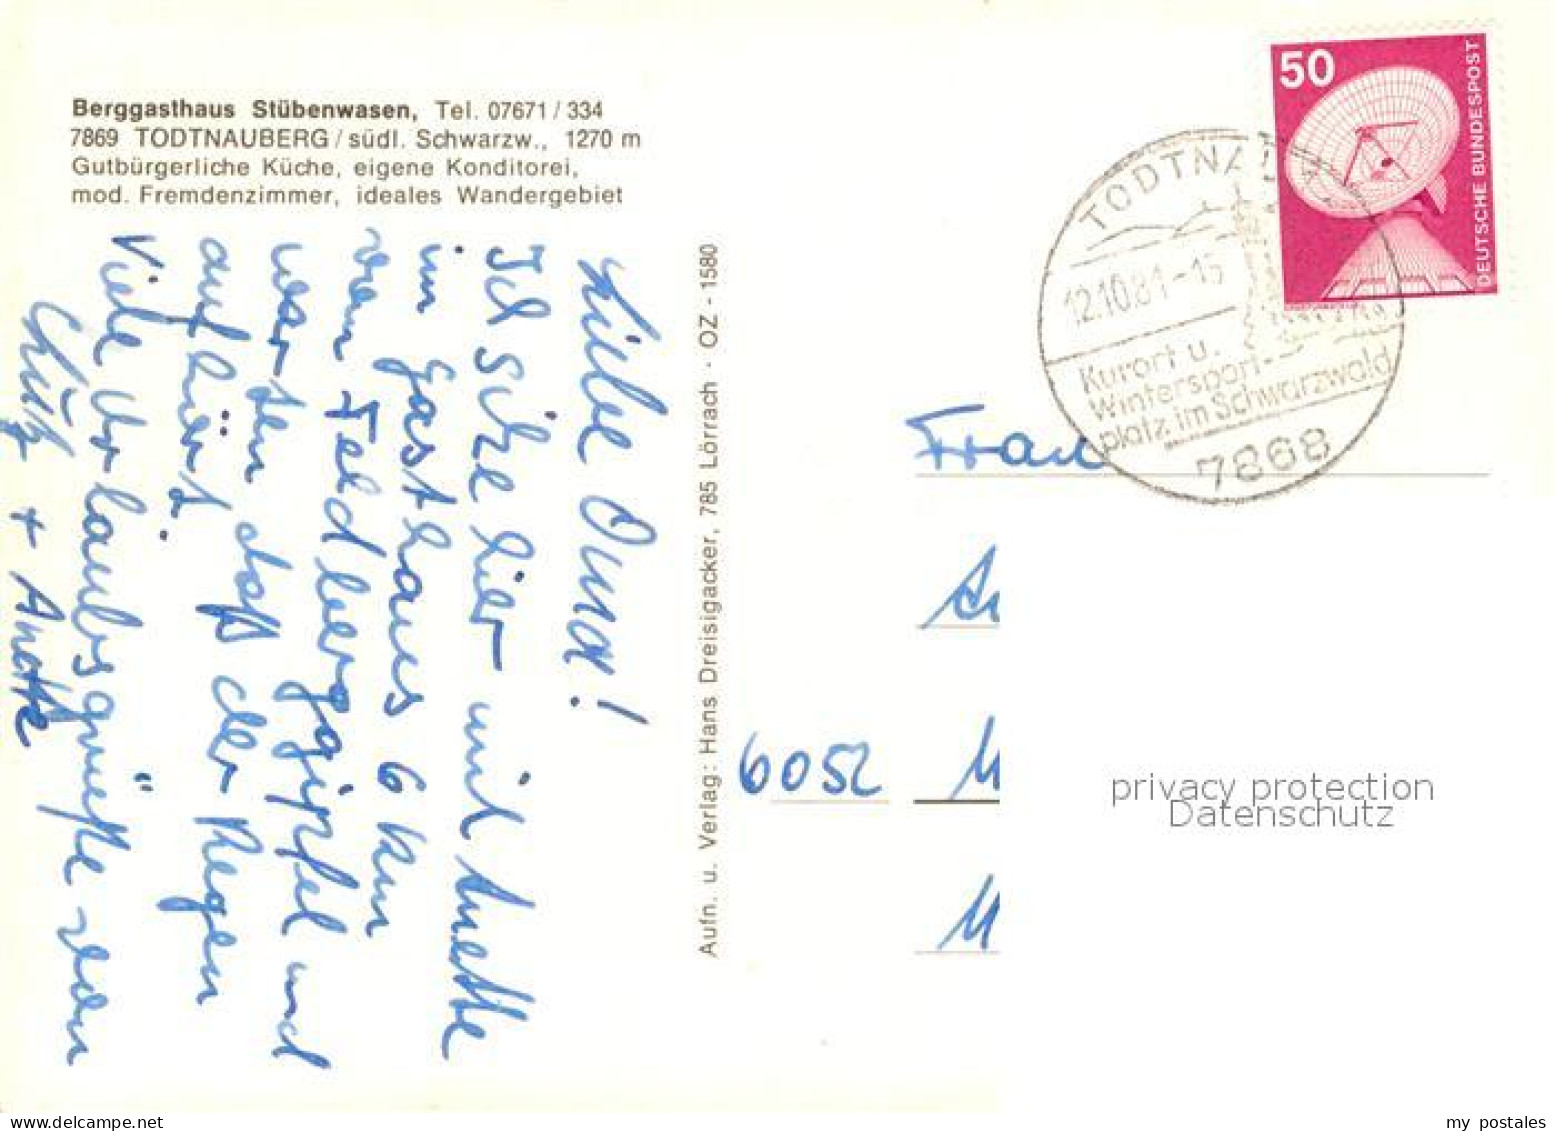 Berggasthaus Stübenwasen, Tel. 07671/334
7869 TODTNAUBERG/südl. Schwarzw., 1270 m
Gutbürgerliche Küche, eigene Konditorei,
mod. Fremdenzimmer, ideales Wandergebiet
Liebe Oma!
Ich sitze hier mit Anette
im Gasthaus 6 km
vom Feldberggipfel und
warten daß der Regen
aufhört.
Viele Urlaubsgrüße von
+ Anette
Aufn. u. Verlag: Hans Dreisigacker, 785 Lörrach · OZ - 1580
50
DEUTSCHE BUNDESPOST
12.10.81-15
Kurort u.
Wintersport-
platz im Schwarzwald
7868
Frau
6052 M
M
privacy protection
Datenschutz
my postales